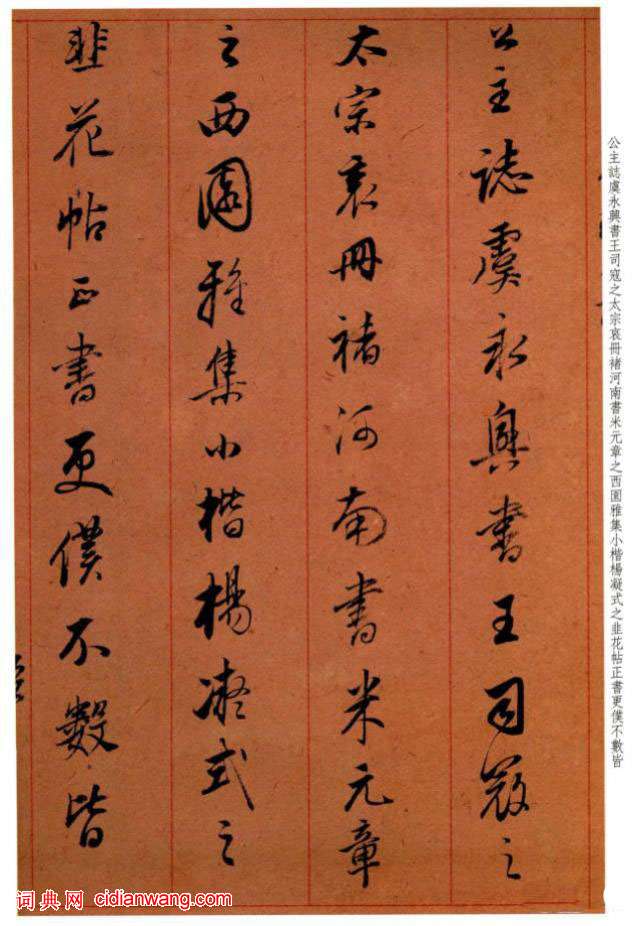 公主誌虞永興書王司寇之
太宗哀冊褚河南書米元章
之西園雅集小楷楊凝式之
韭花帖正書更僕不數皆
公主誌虞永興書王司寇之太宗哀冊褚河南書米元章之西園雅集小楷楊凝式之韭花帖正書更僕不數皆
词典网 cidianwang.com